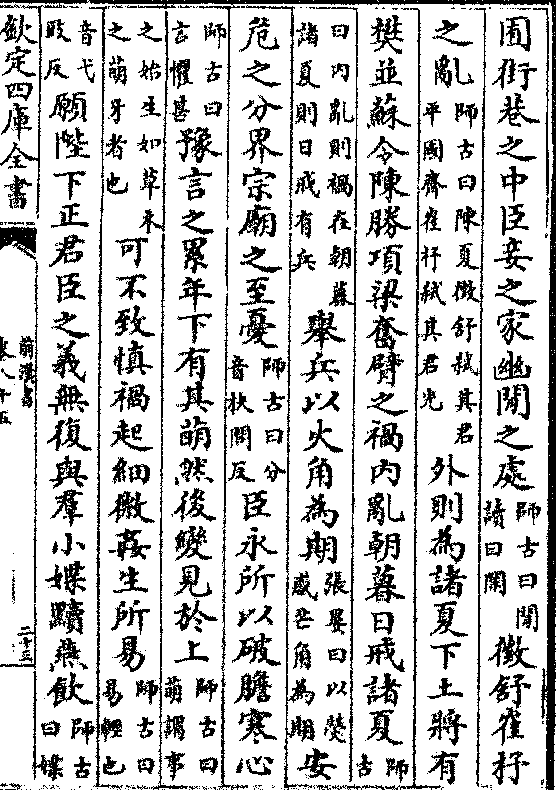 囿街巷之中臣妾之家幽閒之處師古曰閒讀曰閑徵舒崔杼
之亂師古曰陳夏徵舒弑其君平國齊崔杼弑其君光外則為諸夏下土將有
樊並蘇令陳勝項梁奮臂之禍内亂朝暮日戒諸夏師古
曰内亂則禍在朝暮諸夏則日戒有兵舉兵以火角為期張晏曰以熒惑芒角為期安
危之分界宗廟之至憂師古曰分音扶問反臣永所以破膽寒心
師古曰言懼甚豫言之累年下有其萌然後變見於上師古曰萌謂事
之始生如草木之萌牙者也可不致慎禍起細微姦生所易師古曰易輕也
音弋豉反願陛下正君臣之義無復與羣小媟黷燕飲師古曰媟
欽定四庫全書
前漢書
卷八十五
二十三